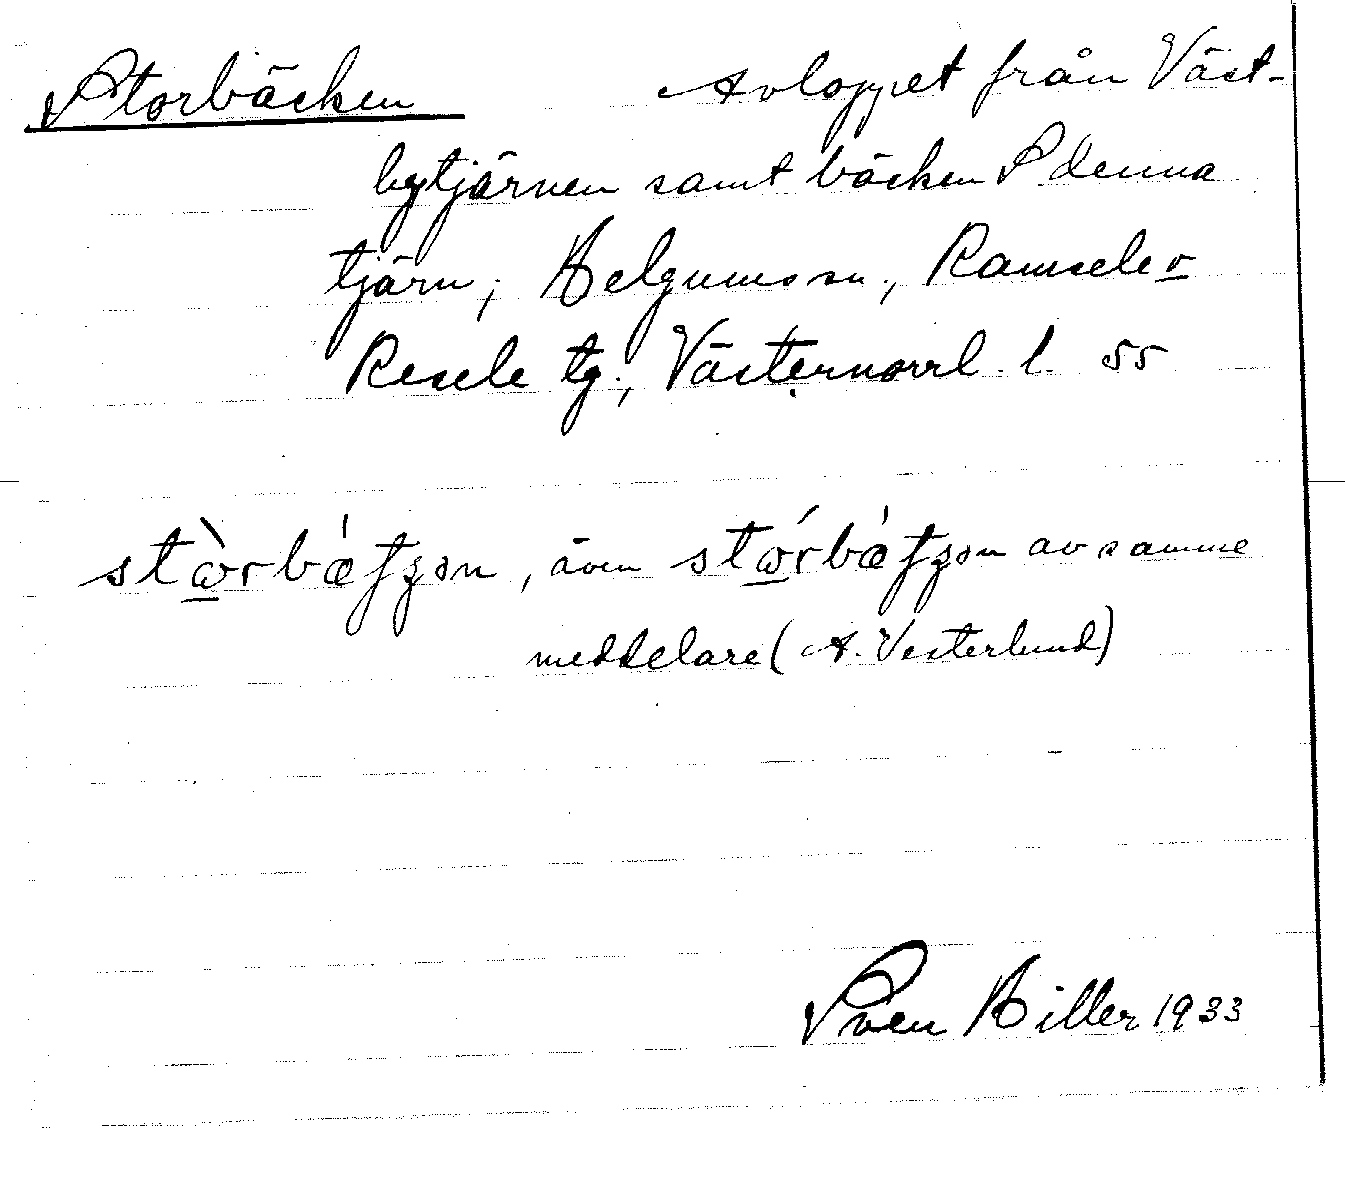 Storbäcken Avloppet från Väst-
bytjärnen samt bäcken S denna
tjärn, Helgums sn, Ramsele o
Resele tg., Västernorrl. l. 55
stɷ̀rbæ̍ʃʒən, även stɷ́rbæ̍ʃʒən av samme
meddelare (A. Vesterlund)
Sven Hiller 1933